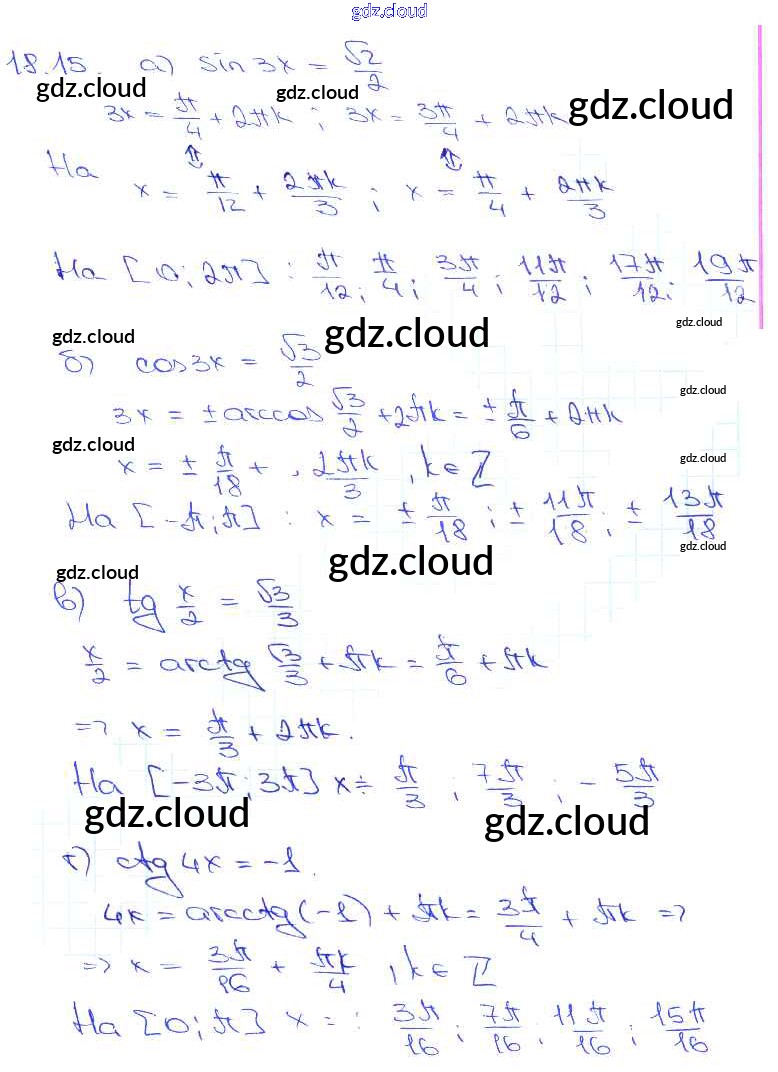 gdz.cloud
18.15. а) sin 3x = √2/2
gdz.cloud gdz.cloud gdz.cloud
3x = π/4 + 2πk ; 3x = 3π/4 + 2πk
⇕ ⇕
На
x = π/12 + 2πk/3 ; x = π/4 + 2πk/3
На [0; 2π] : π/12; π/4; 3π/4; 11π/12; 17π/12; 19π/12
gdz.cloud gdz.cloud gdz.cloud
б) cos 3x = √3/2
gdz.cloud
3x = ± arccos √3/2 + 2πk = ± π/6 + 2πk
gdz.cloud gdz.cloud
x = ± π/18 + , 2πk/3 , k ∈ Z
На [-π; π] : x = ± π/18 ; ± 11π/18 ; ± 13π/18
gdz.cloud gdz.cloud gdz.cloud
в) tg x/2 = √3/3
x/2 = arctg √3/3 + πk = π/6 + πk
=> x = π/3 + 2πk.
На [-3π; 3π] x÷ π/3 ; 7π/3 ; - 5π/3
gdz.cloud gdz.cloud
г) ctg 4x = -1.
4x = arcctg(-1) + πk = 3π/4 + πk =>
=> x = 3π/16 + πk/4 , k ∈ Z
На [0; π] x = : 3π/16 ; 7π/16 ; 11π/16 ; 15π/16